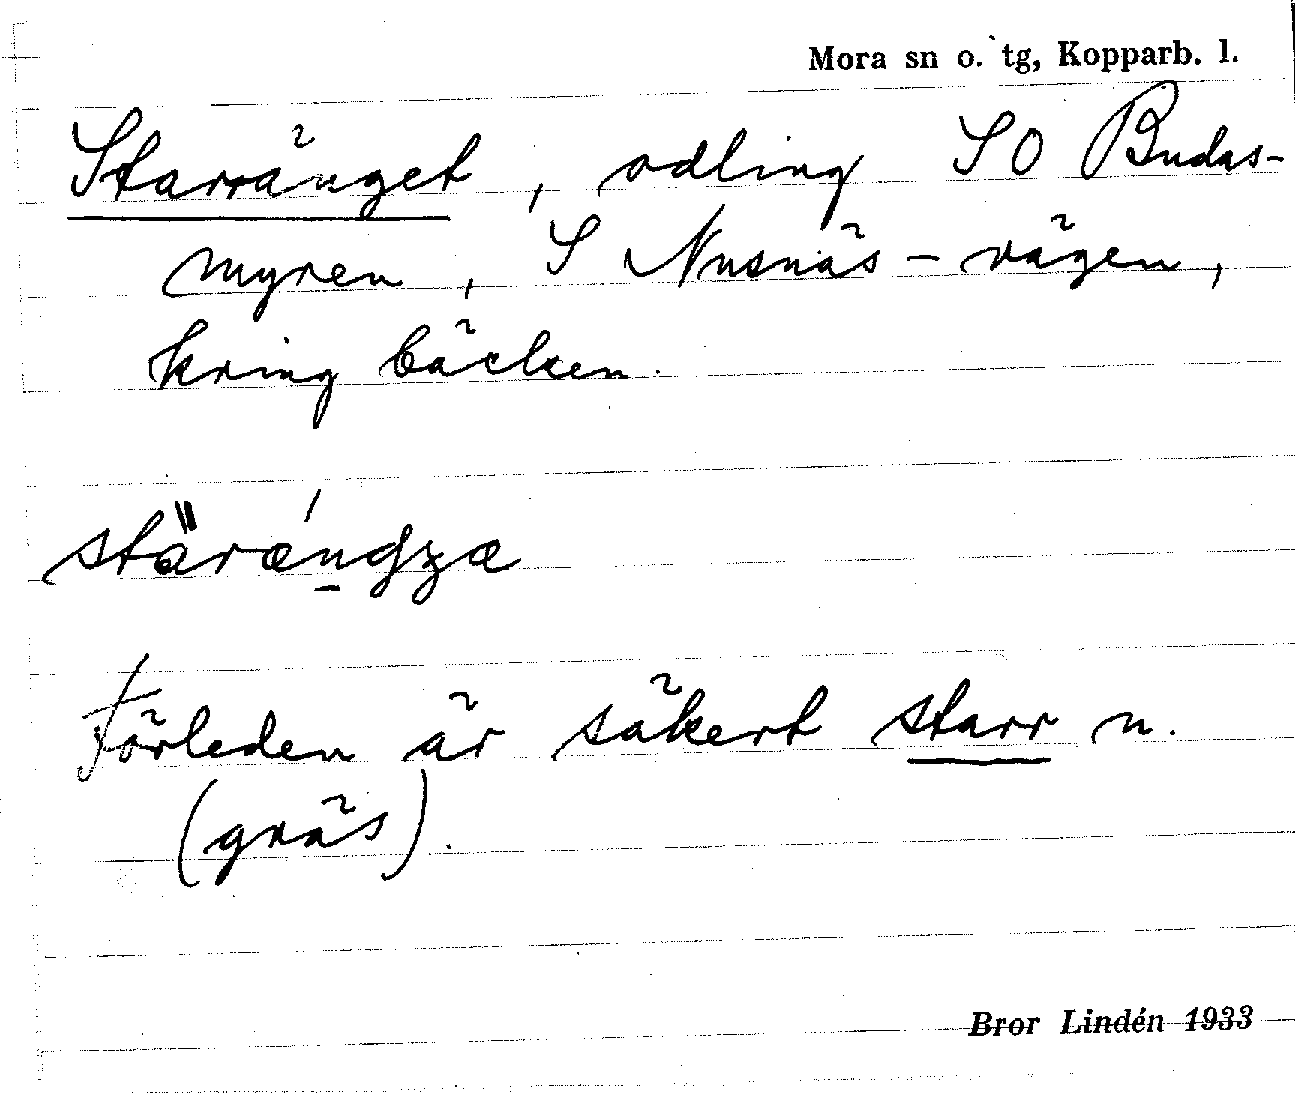 Mora sn o. tg, Kopparb. l.
Starränget, odling SO Budas-
myren, S Nusnäs-vägen,
kring bäcken.
stärængzæ
Förleden är säkert starr n.
(gräs).
Bror Lindén 1933